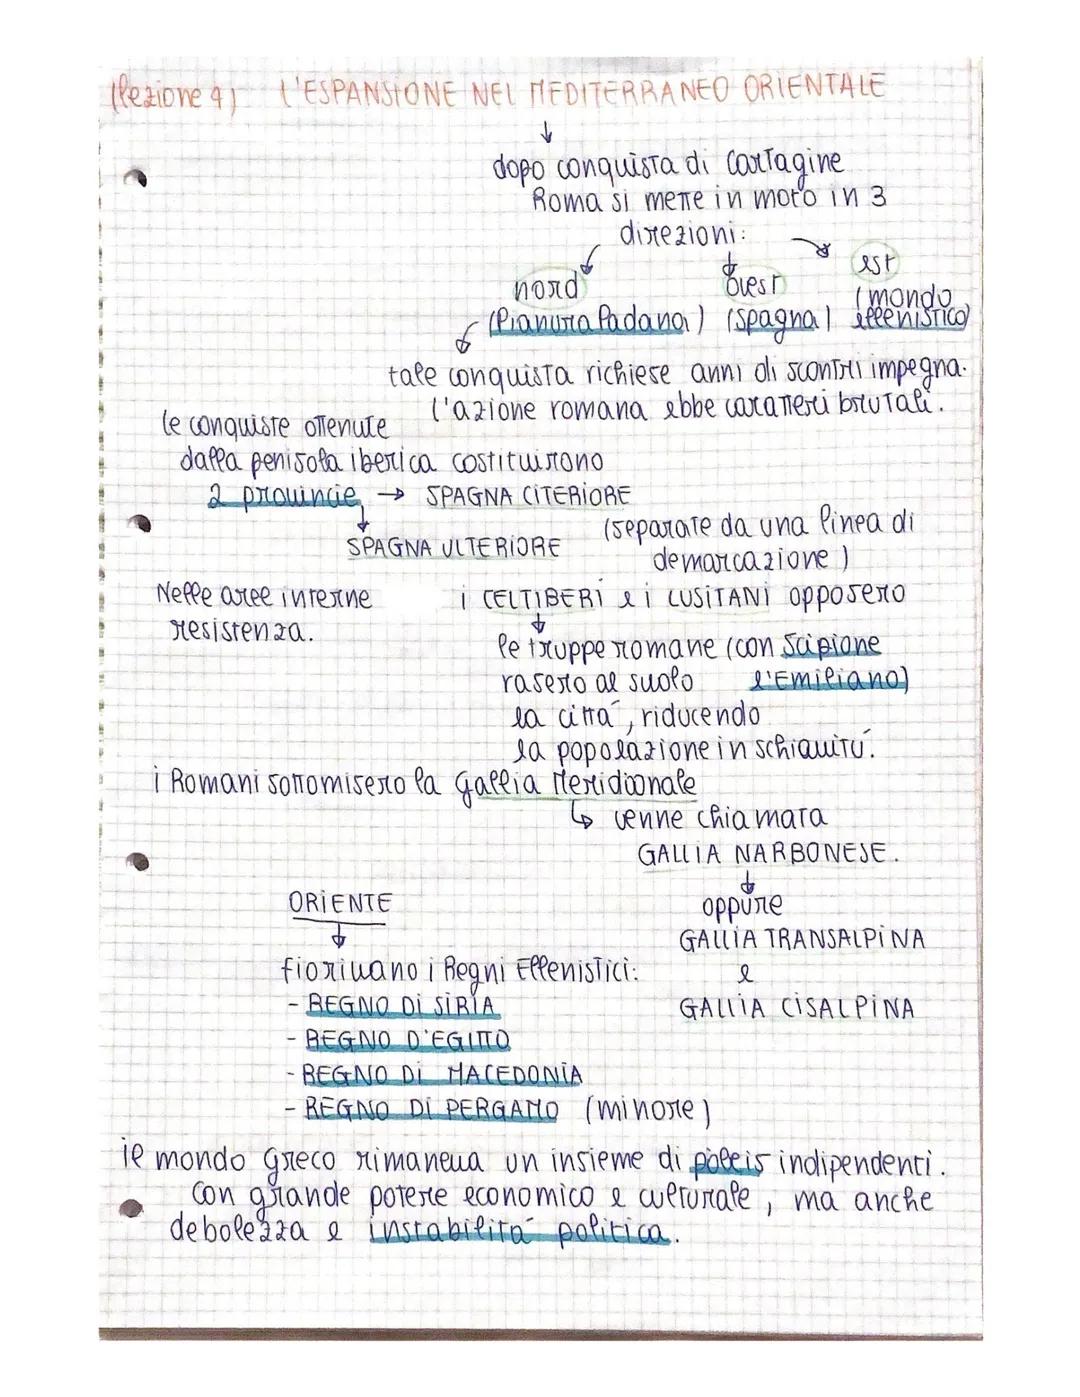 (lezione 4) L'ESPANSIONE NEL MEDITERRANEO ORIENTALE
↓
dopo conquista di Cartagine
Roma si mette in moto in 3
direzioni:
nord ovest est
(Pianura Padana) (Spagna) (mondo
ellenistico)
tale conquista richiese anni di scontri impegna.
L'azione romana ebbe caratteri brutali.
le conquiste ottenute
dalla penisola iberica costituirono
2 provincie → SPAGNA CITERIORE
↓
SPAGNA ULTERIORE (separate da una linea di
demarcazione)
Nelle aree interne i CELTIBERI e i LUSITANI opposero
resistenza.
↓
le truppe romane (con Scipione
l'Emiliano)
rasero al suolo
la città, riducendo
la popolazione in schiavitù.
i Romani sottomisero la Gallia Meridioonale
↳ venne chiamata
GALLIA NARBONESE.
↓
oppure
GALLIA TRANSALPINA
e
GALLIA CISALPINA
ORIENTE
↓
fiorivano i Regni Ellenistici:
- REGNO DI SIRIA
- REGNO D'EGITTO
- REGNO DI MACEDONIA
- REGNO DI PERGAMO (minore)
il mondo greco rimaneva un insieme di pòleis indipendenti.
Con grande potere economico e culturale, ma anche
debolezza e instabilità politica.